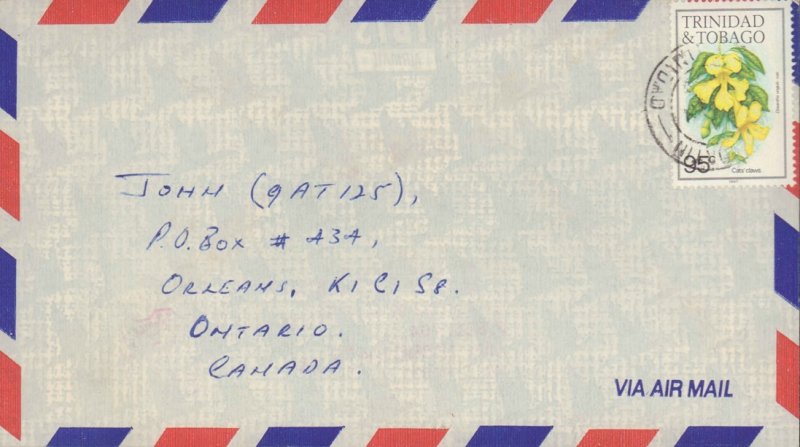 TRINIDAD
& TOBAGO
95c
Cats' claws
JOHN (9AT125),
P.O. BOX # A3A,
ORLEANS, K1C1S8.
ONTARIO.
CANADA.
VIA AIR MAIL